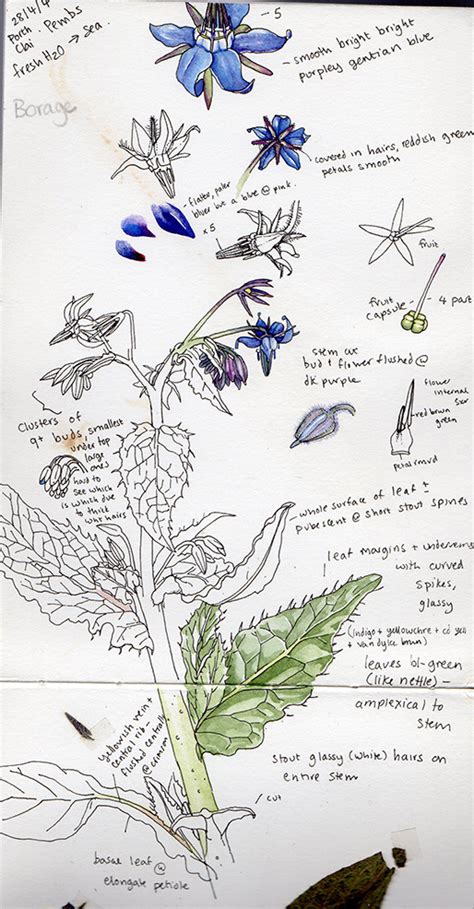 28/4/4
Porth
Clai. Pembs
fresh H2O → Sea.
Borage
5
- smooth bright bright
purpley gentian blue
covered in hairs, reddish green
petals smooth
flatter, paler
blue @ pink.
x5
fruit
fruit
capsule
4 part
stem at
bud + flower flushed @
dk purple
flower
internal
red brwn
green
petal rmvd
Clusters of
9+ buds, smallest
under top
large
ones
hard to
see which
is which due
to thick
hairs
whole surface of leaf ±
pubescent @ short stout spines
leaf margins +
with curved
spikes,
glassy
(indigo + yellow ochre + cd yell
+ van dyke brwn)
leaves 'ol-green
(like nettle) -
amplexical to
stem
yellowish vein +
central rib -
flushed centrally
@
stout glassy (white) hairs on
entire stem
cut
basal leaf @
elongate petiole